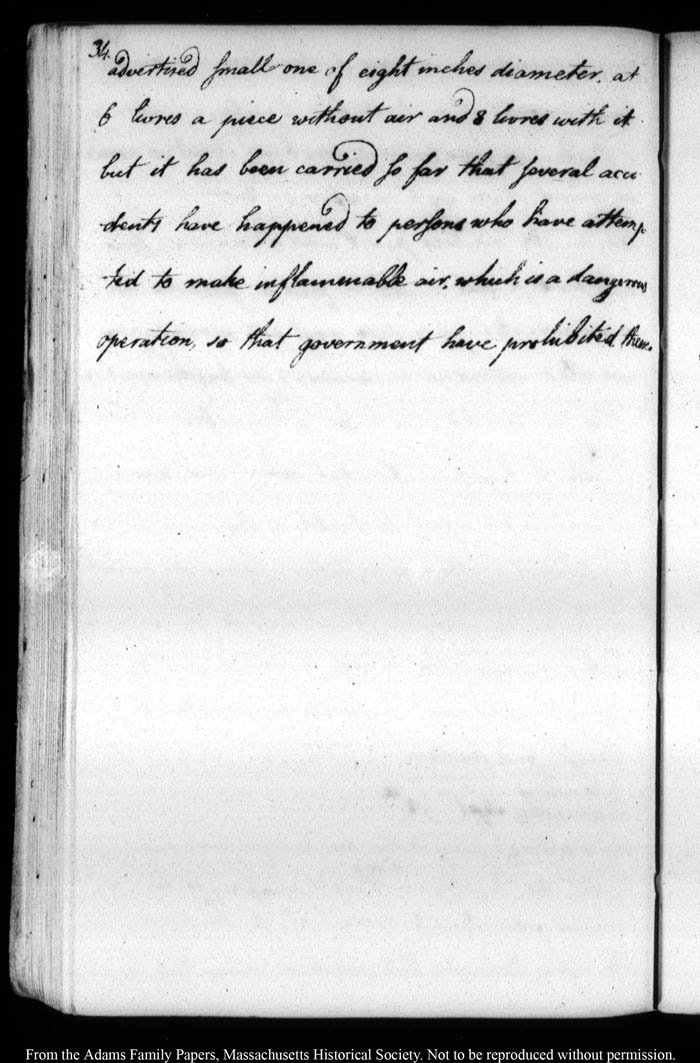 34.
advertised small one of eight inches diameter, at
6 livres a piece without air and 8 livres with it
but it has been carried so far that several acci
dents have happened to persons who have attemp
ted to make inflammable air, which is a dangerous
operation, so that government have prohibited them.
From the Adams Family Papers, Massachusetts Historical Society. Not to be reproduced without permission.